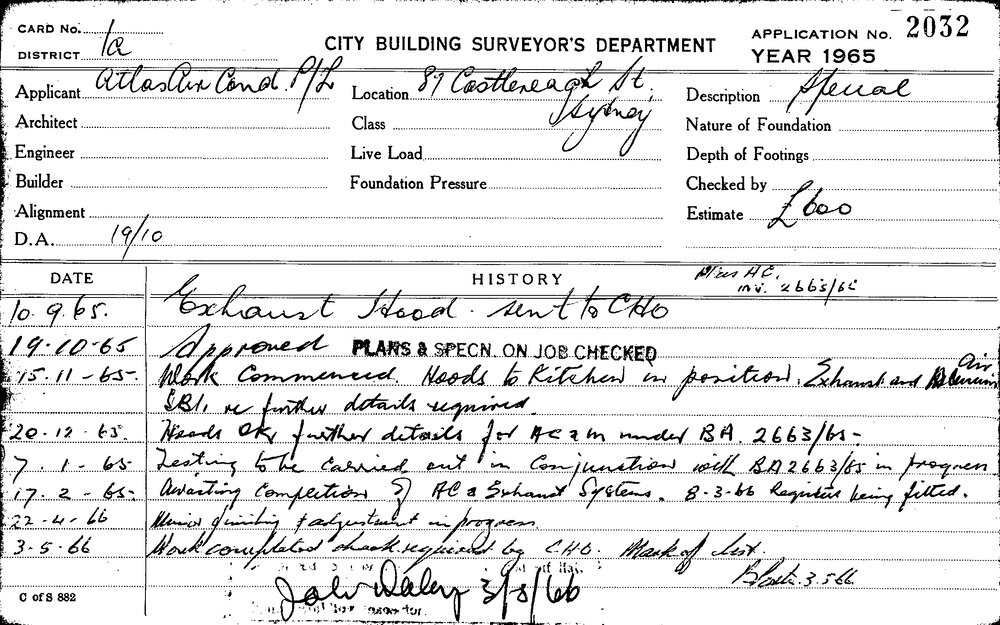 CARD No.
DISTRICT 1a
CITY BUILDING SURVEYOR'S DEPARTMENT
APPLICATION No. 2032
YEAR 1965
Applicant Atlas Air Cond. P/L
Location 87 Castlereagh St, Sydney
Description Special
Architect
Class
Nature of Foundation
Engineer
Live Load
Depth of Footings
Builder
Foundation Pressure
Checked by
Alignment
Estimate £600
D.A. 19/10
DATE
HISTORY
Misc AC.
inv. 2663/65
10.9.65. Exhaust Hood. sent to CHO
19-10-65 Approved PLANS & SPECN. ON JOB CHECKED
15.11-65. Work Commenced. Hoods to Kitchen in position. Exhaust and Air
SBI. re further details required.
20.12.65. Hoods OK, further details for AC & M under BA. 2663/65-
7.1-65 Testing to be carried out in conjunction with BA2663/65 in progress
17.2-65- Awaiting Completion of AC & Exhaust Systems. 8-3-66 Registers being fitted.
22-4-66 Minor finishing & adjustment in progress
3-5-66 Work completed check required by CHO. Mark of list.
3.5.66
John Daley 3/5/66
C of S 882